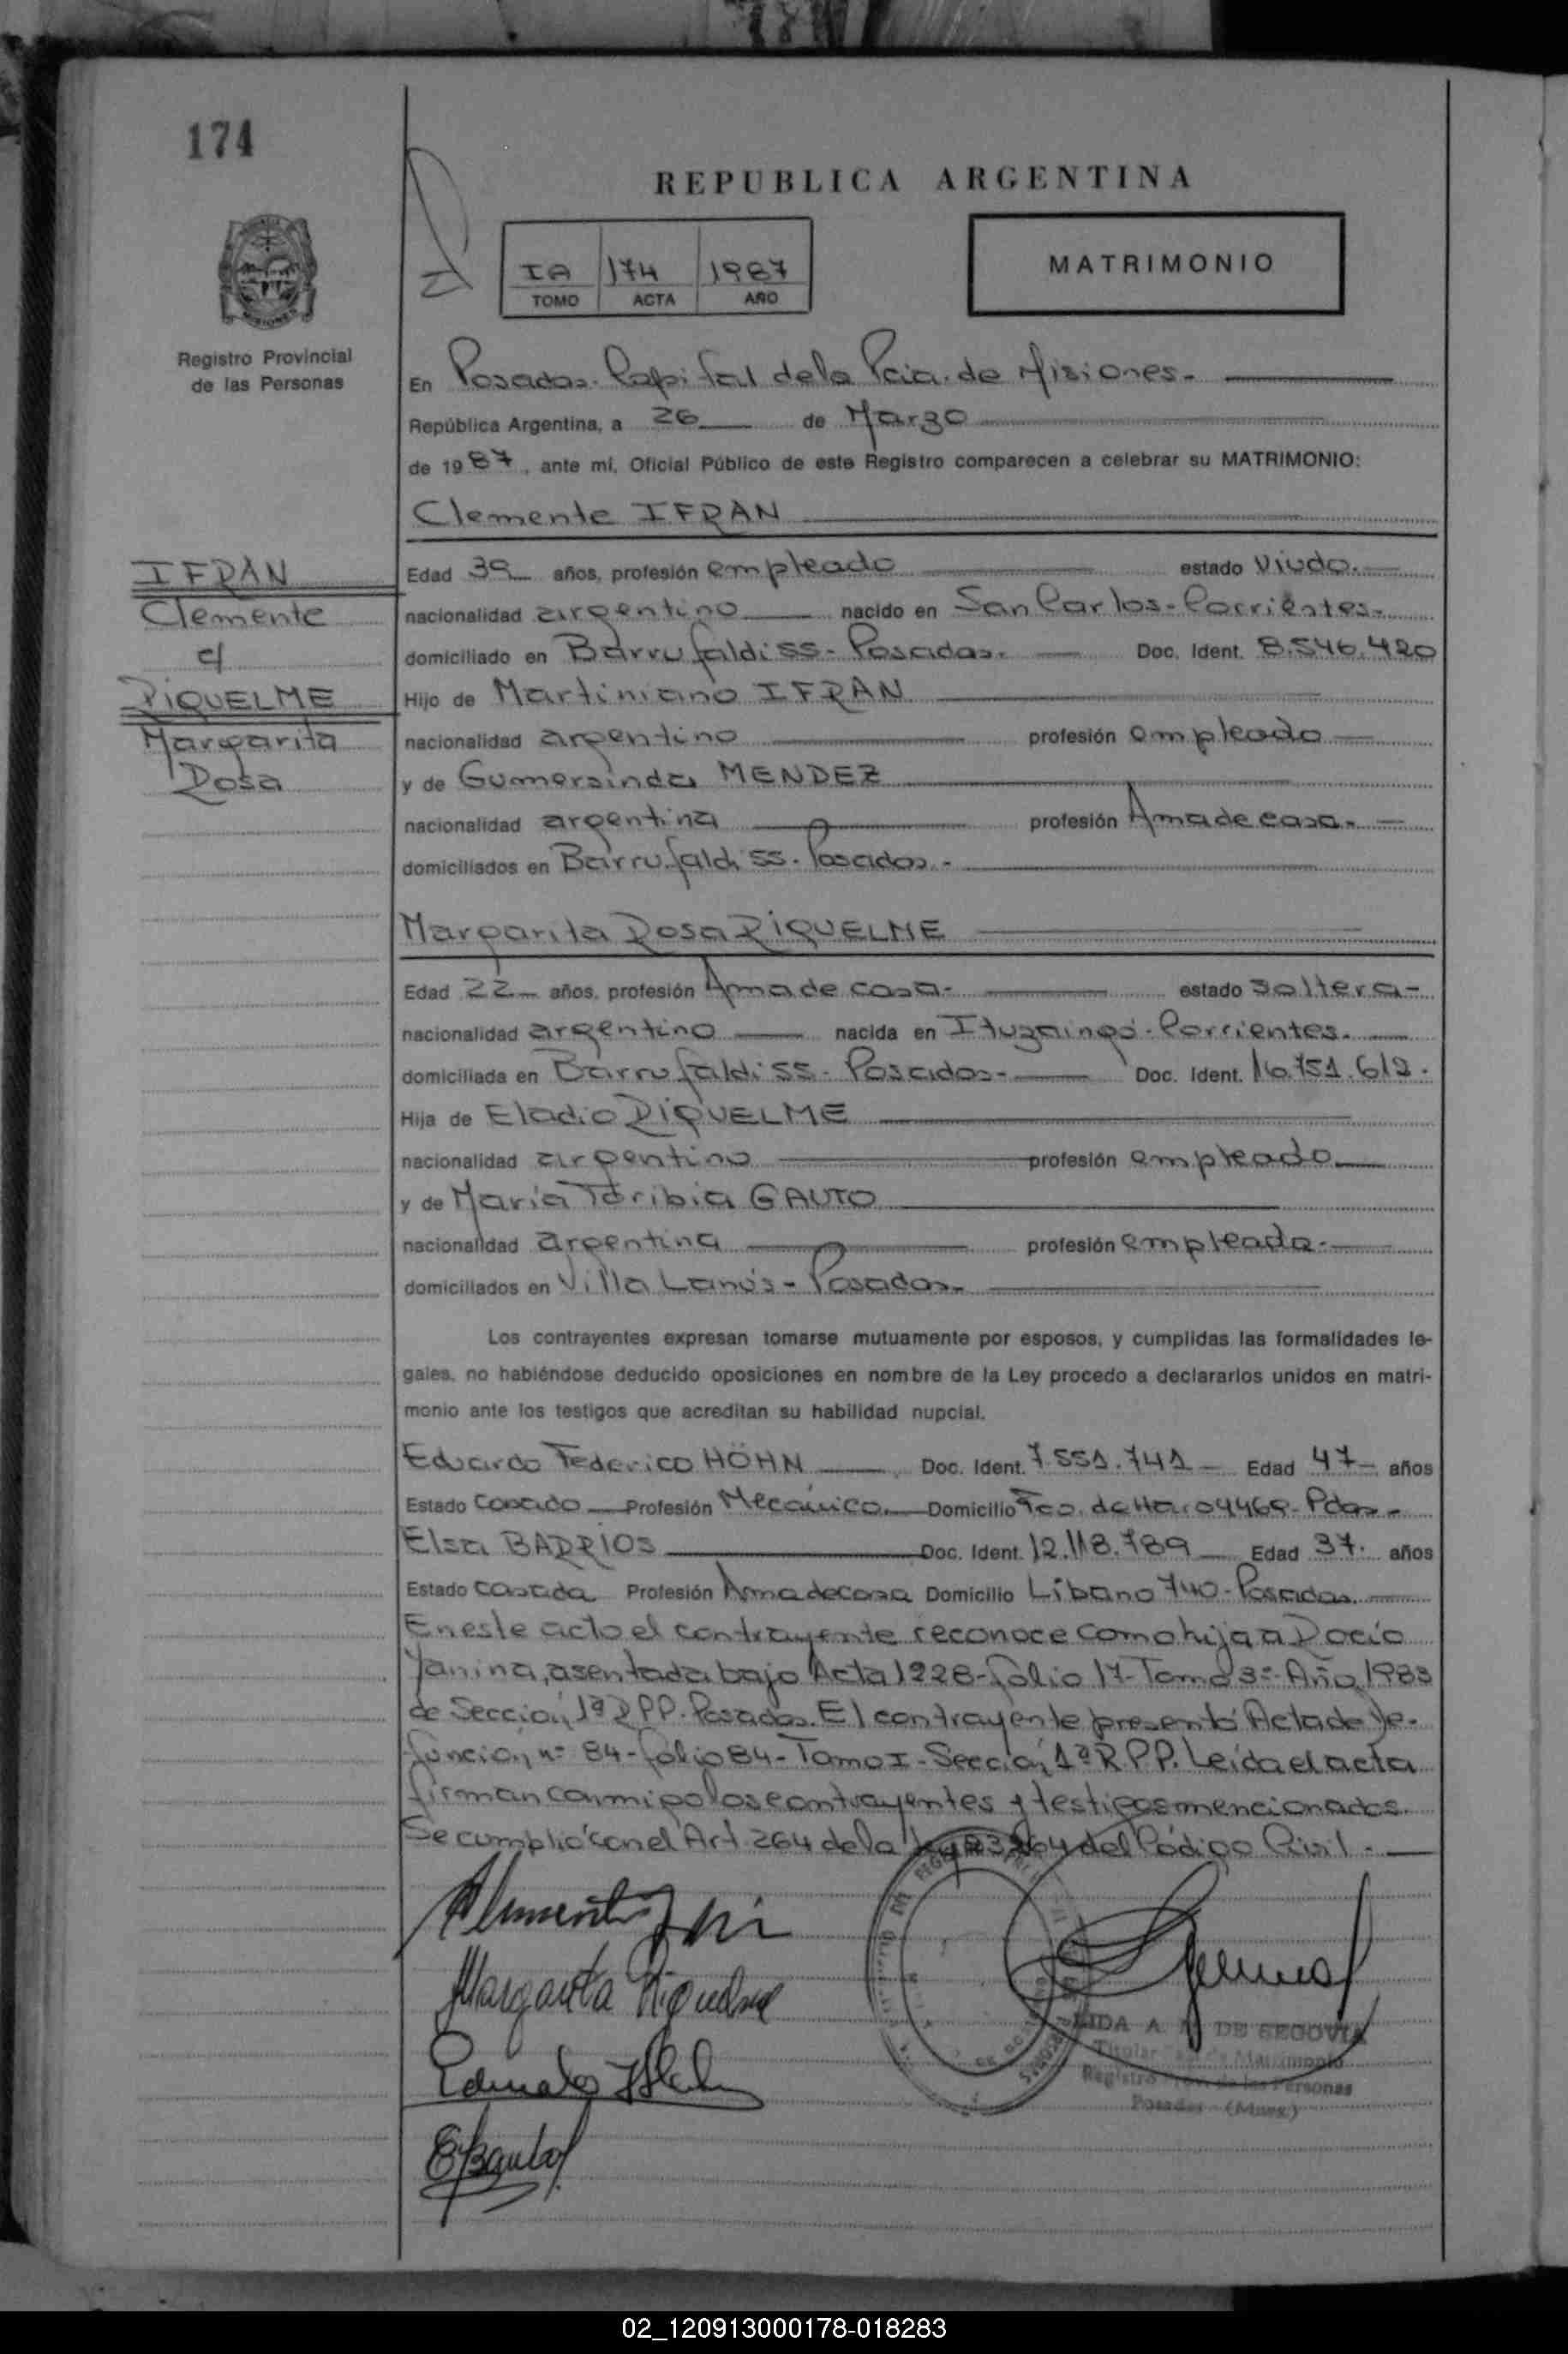 174
REPUBLICA ARGENTINA
IA 174 1987
TOMO ACTA AÑO
MATRIMONIO
Registro Provincial
de las Personas
En Posadas. Capital de la Pcia. de Misiones.
República Argentina, a 26 de Marzo
de 1987, ante mí, Oficial Público de este Registro comparecen a celebrar su MATRIMONIO:
Clemente IFRAN
IFRAN
Clemente
c/
RIQUELME
Margarita
Rosa
Edad 39 años, profesión empleado estado viudo.
nacionalidad argentino nacido en San Carlos-Corrientes-
domiciliado en Barrufaldi 55- Posadas. Doc. Ident. 8.546.420
Hijo de Martiniano IFRAN
nacionalidad argentino profesión empleado
y de Gumersinda MENDEZ
nacionalidad argentina profesión Ama de casa.
domiciliados en Barrufaldi 55. Posadas.-
Margarita Rosa RIQUELME
Edad 22 años, profesión Ama de casa- estado soltera-
nacionalidad argentino nacida en Ituzaingó-Corrientes.
domiciliada en Barrufaldi 55- Posadas- Doc. Ident. 16.751.612.
Hija de Eladio RIQUELME
nacionalidad argentino profesión empleado
y de María Toribia GAUTO
nacionalidad argentina profesión empleada.
domiciliados en Villa Lanús- Posadas.
Los contrayentes expresan tomarse mutuamente por esposos, y cumplidas las formalidades le-
gales, no habiéndose deducido oposiciones en nombre de la Ley procedo a declararlos unidos en matri-
monio ante los testigos que acreditan su habilidad nupcial.
Eduardo Federico HÖHN Doc. Ident. 7.551.741 Edad 47 años
Estado casado Profesión Mecánico. Domicilio Fco. de Haro 4469- Pdas-
Elsa BARRIOS Doc. Ident. 12.118.789 Edad 37. años
Estado casada Profesión Ama de casa Domicilio Líbano 740-Posadas.
En este acto el contrayente reconoce como hija a Rocío
Yanina, asentada bajo Acta 1228-folio 17-Tomo 3º-Año 1983
de Sección 1ª RPP. Posadas. El contrayente presentó Acta de De-
función nº 84-folio 84-Tomo I-Sección 1ª R.P.P. Leída el acta
firman conmigo los contrayentes y testigos mencionados.
Se cumplió con el Art. 264 de la Ley 23264 del Código Civil.
Margarita Riquelme
A. DE SEGOVIA
Titular de Matrimonio
Registro Prov. de las Personas
Posadas (Mnes.)
02_120913000178-018283